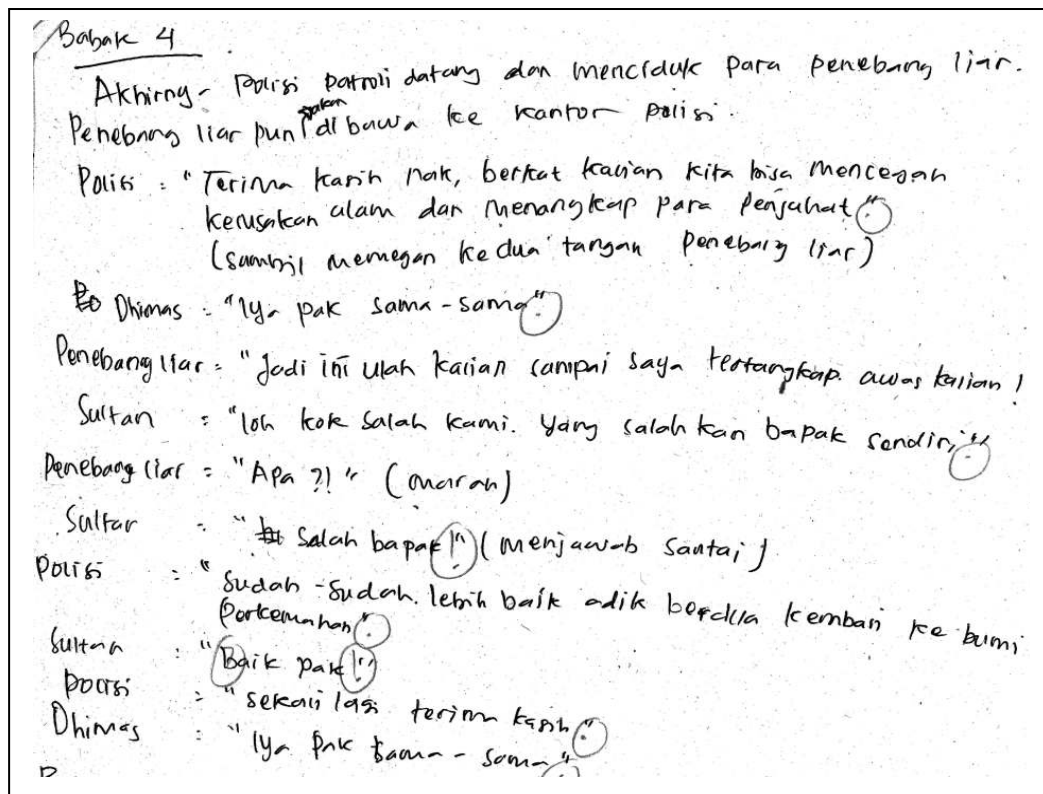 Babak 4
Akhirny- Polisi patroli datang dan menciduk para penebang liar.
Penebang liar pun akan dibawa ke kantor polisi.
Polisi : "Terima kasih nak, berkat kalian kita bisa mencegah
kerusakan alam dan menangkap para penjahat."
(sambil memegan kedua tangan penebang liar)
Dhimas : "Iya pak sama-sama."
Penebang liar : "Jadi ini ulah kalian sampai saya tertangkap. awas kalian!
Sultan : "loh kok salah kami. Yang salah kan bapak sendiri."
Penebang liar : "Apa?!" (marah)
Sultan : "Salah bapak!" (menjawab santai)
Polisi : "Sudah-sudah. lebih baik adik berdua kembali ke bumi
Perkemahan."
Sultan : "Baik pak!"
Polisi : "sekali lagi terima kasih."
Dhimas : "Iya pak sama-sama"